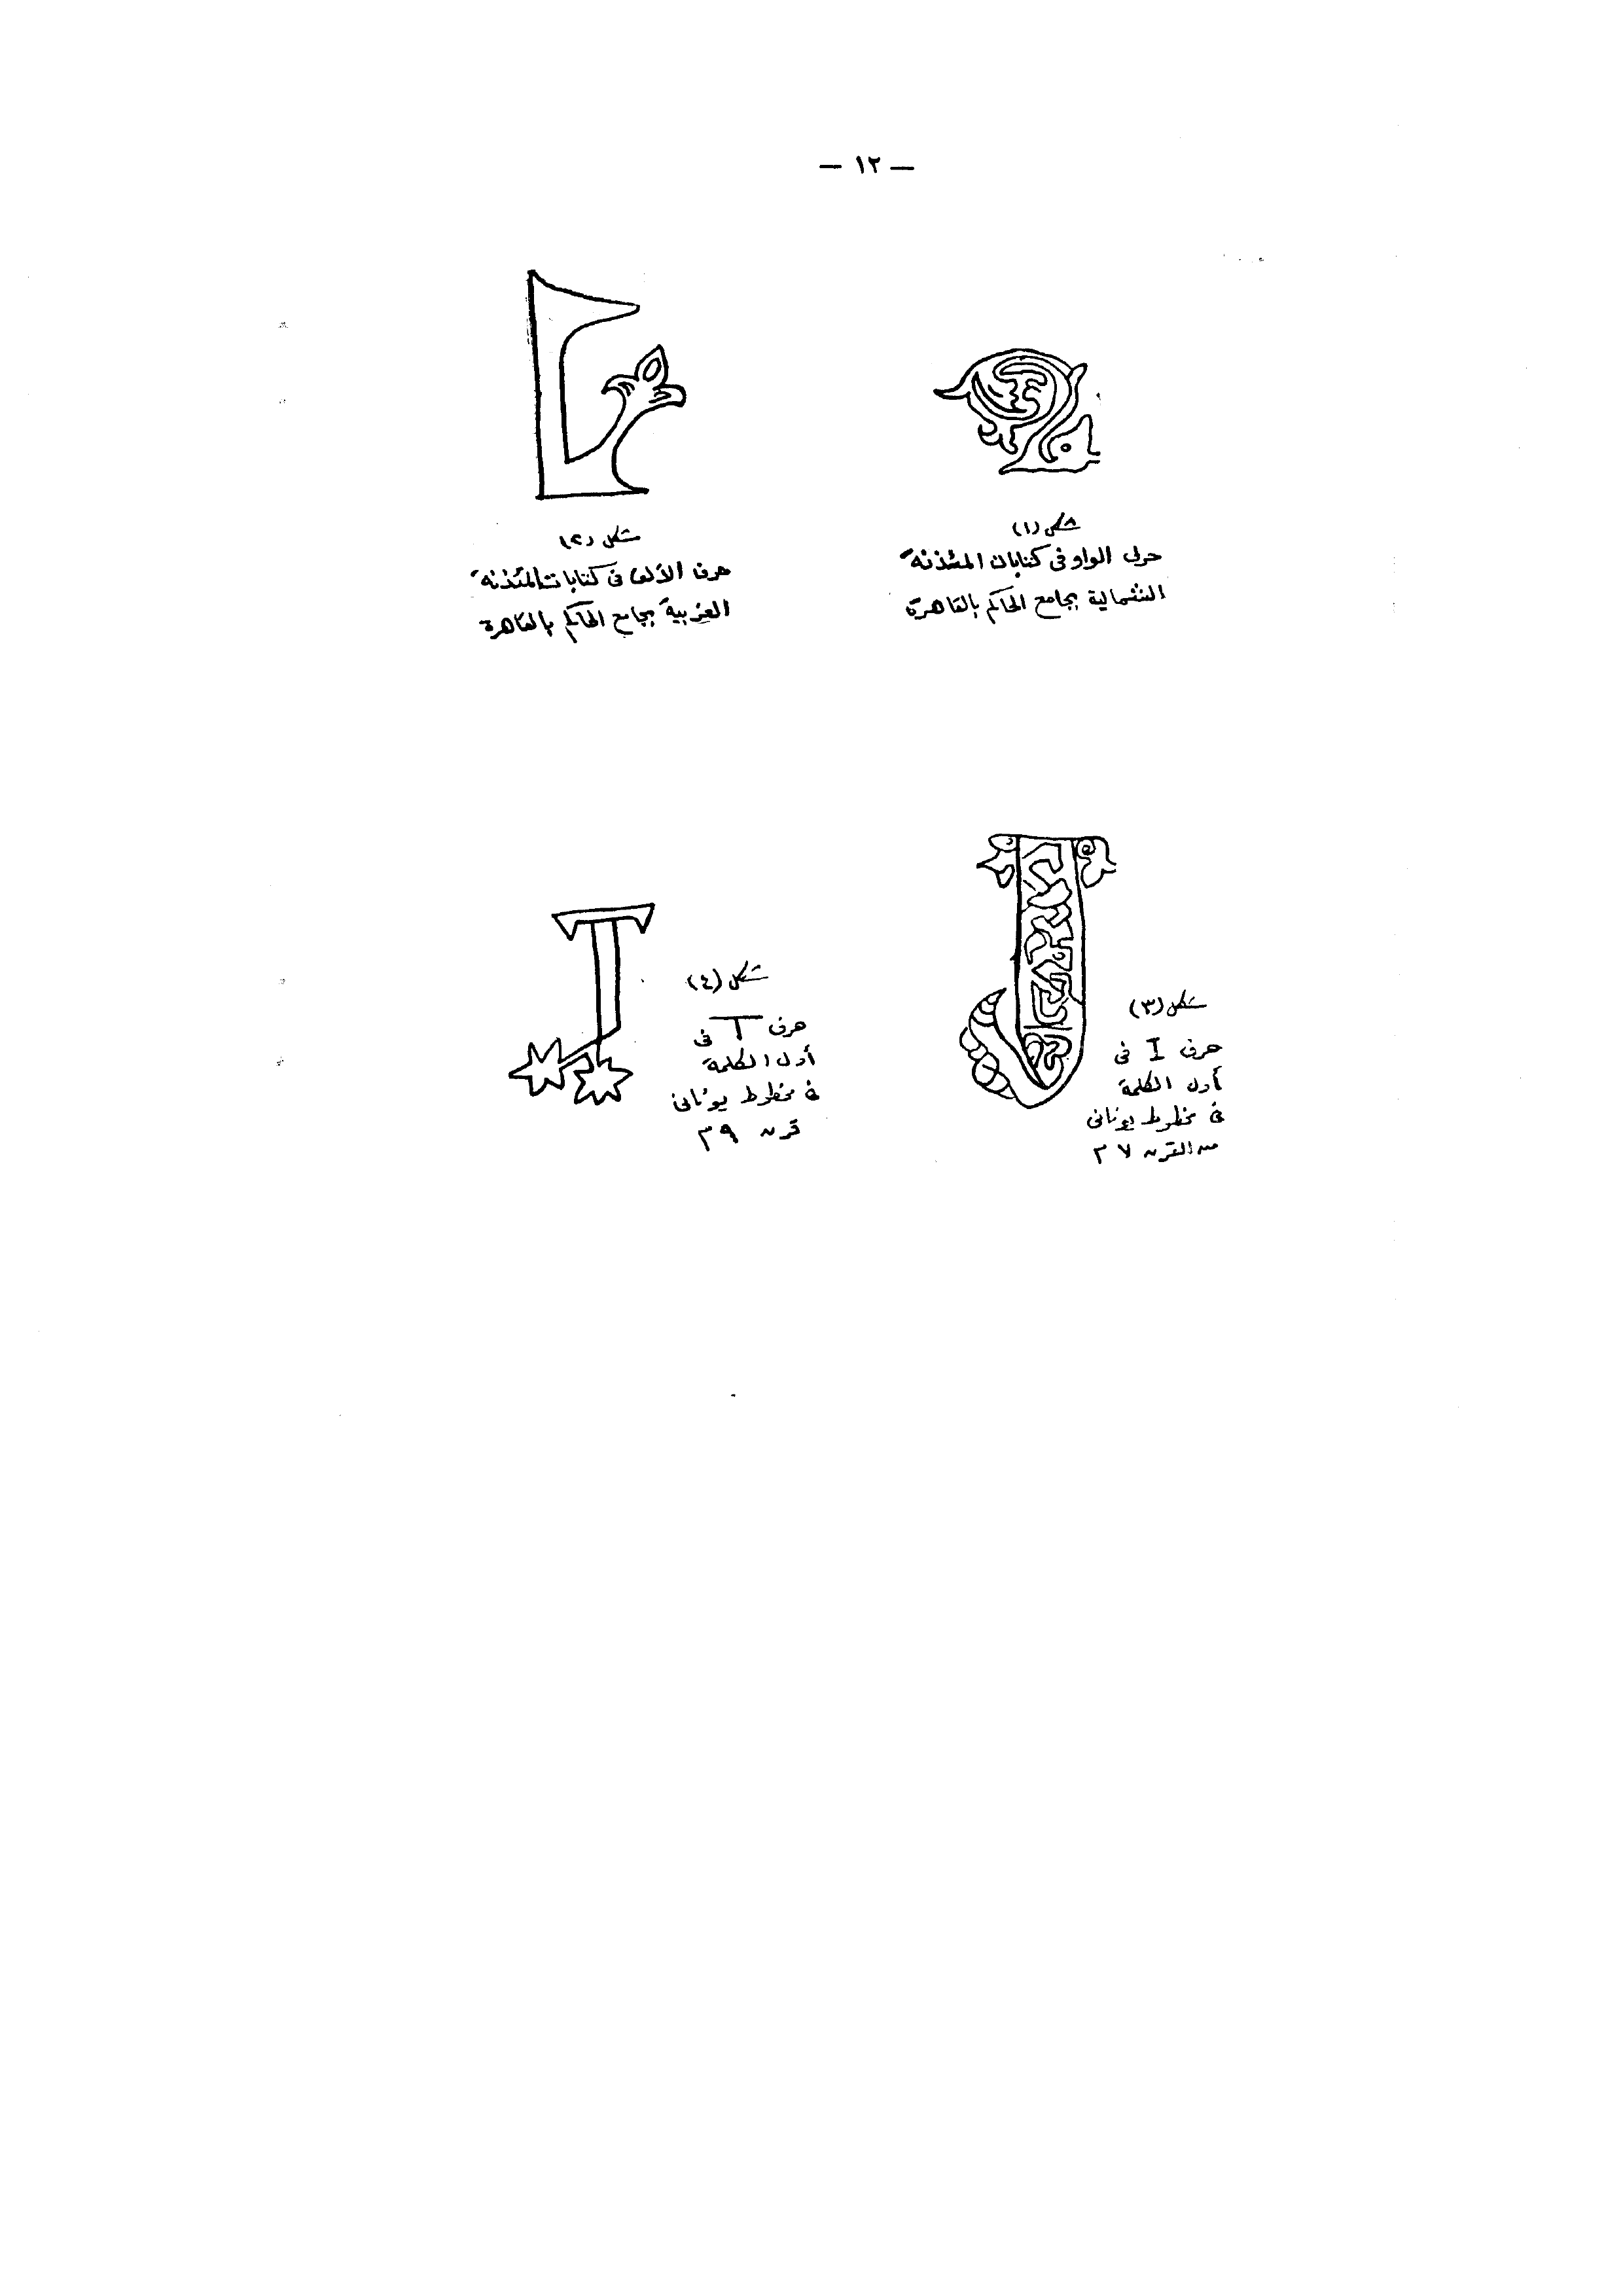 — ١٢ —
شكل (١)
حرف الواو فى كتابات المئذنة
الشمالية بجامع الحاكم بالقاهرة
شكل (٢)
حرف الألف فى كتابات المئذنة
الغربية بجامع الحاكم بالقاهرة
شكل (٣)
حرف I فى
أول الكلمة
فى مخطوط يونانى
من القرن ٧ م
شكل (٤)
حرف T فى
أول الكلمة
فى مخطوط يونانى
قرن ٩ م